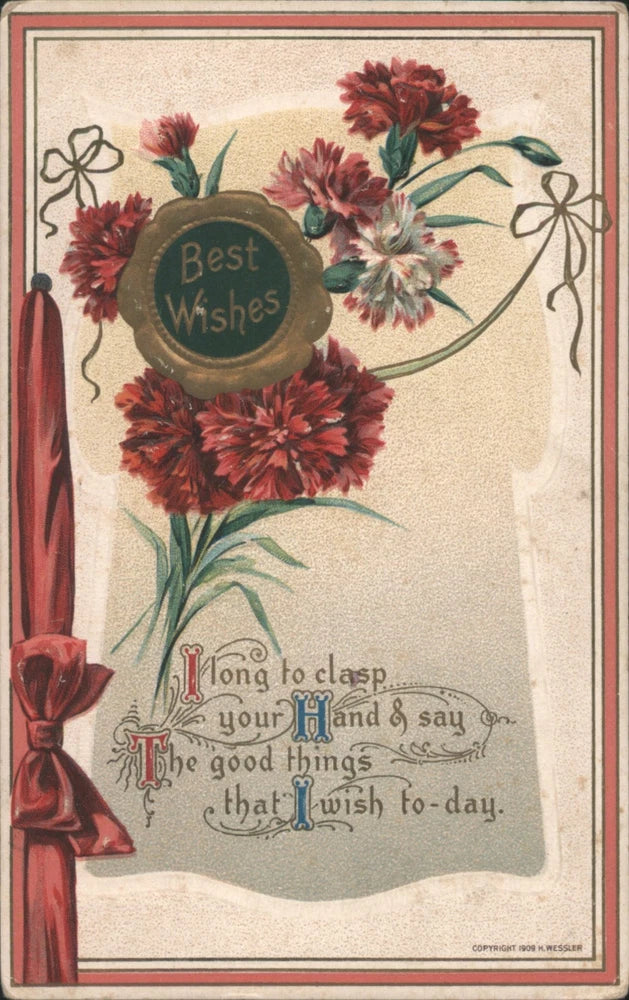 Best
Wishes
I long to clasp
your Hand & say
The good things
that I wish to-day.
COPYRIGHT 1909 H. WESSLER